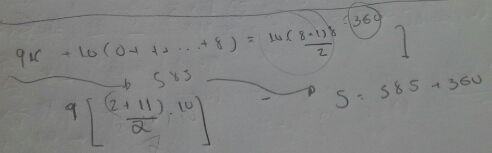 9x + 10(0+1+...+8) = 10.(8+1)8/2 = 360 ]
585
9 [ (2+11)/2 . 10 ] - S = 585 + 360